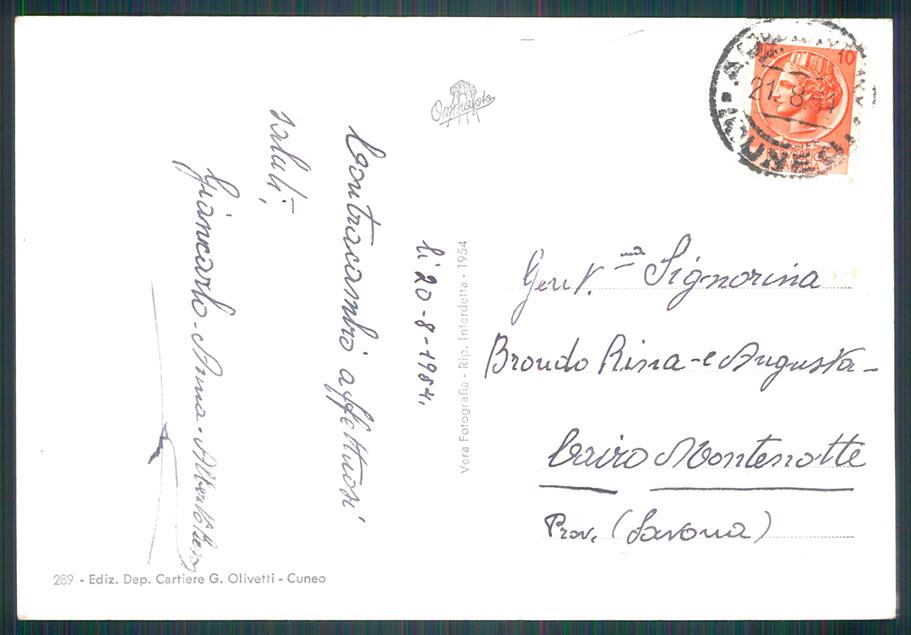 li 20-8-1954.
Contracambio affettuosi
saluti,
Giancarlo-Anna-Alberto
Gent.ma Signorina
Brondo Rina-e Augusta-
Cairo Montenotte
Prov. (Savona)
10
21.8.54
Vera Fotografia - Rip. Interdetta - 1954
289 - Ediz. Dep. Cartiere G. Olivetti - Cuneo